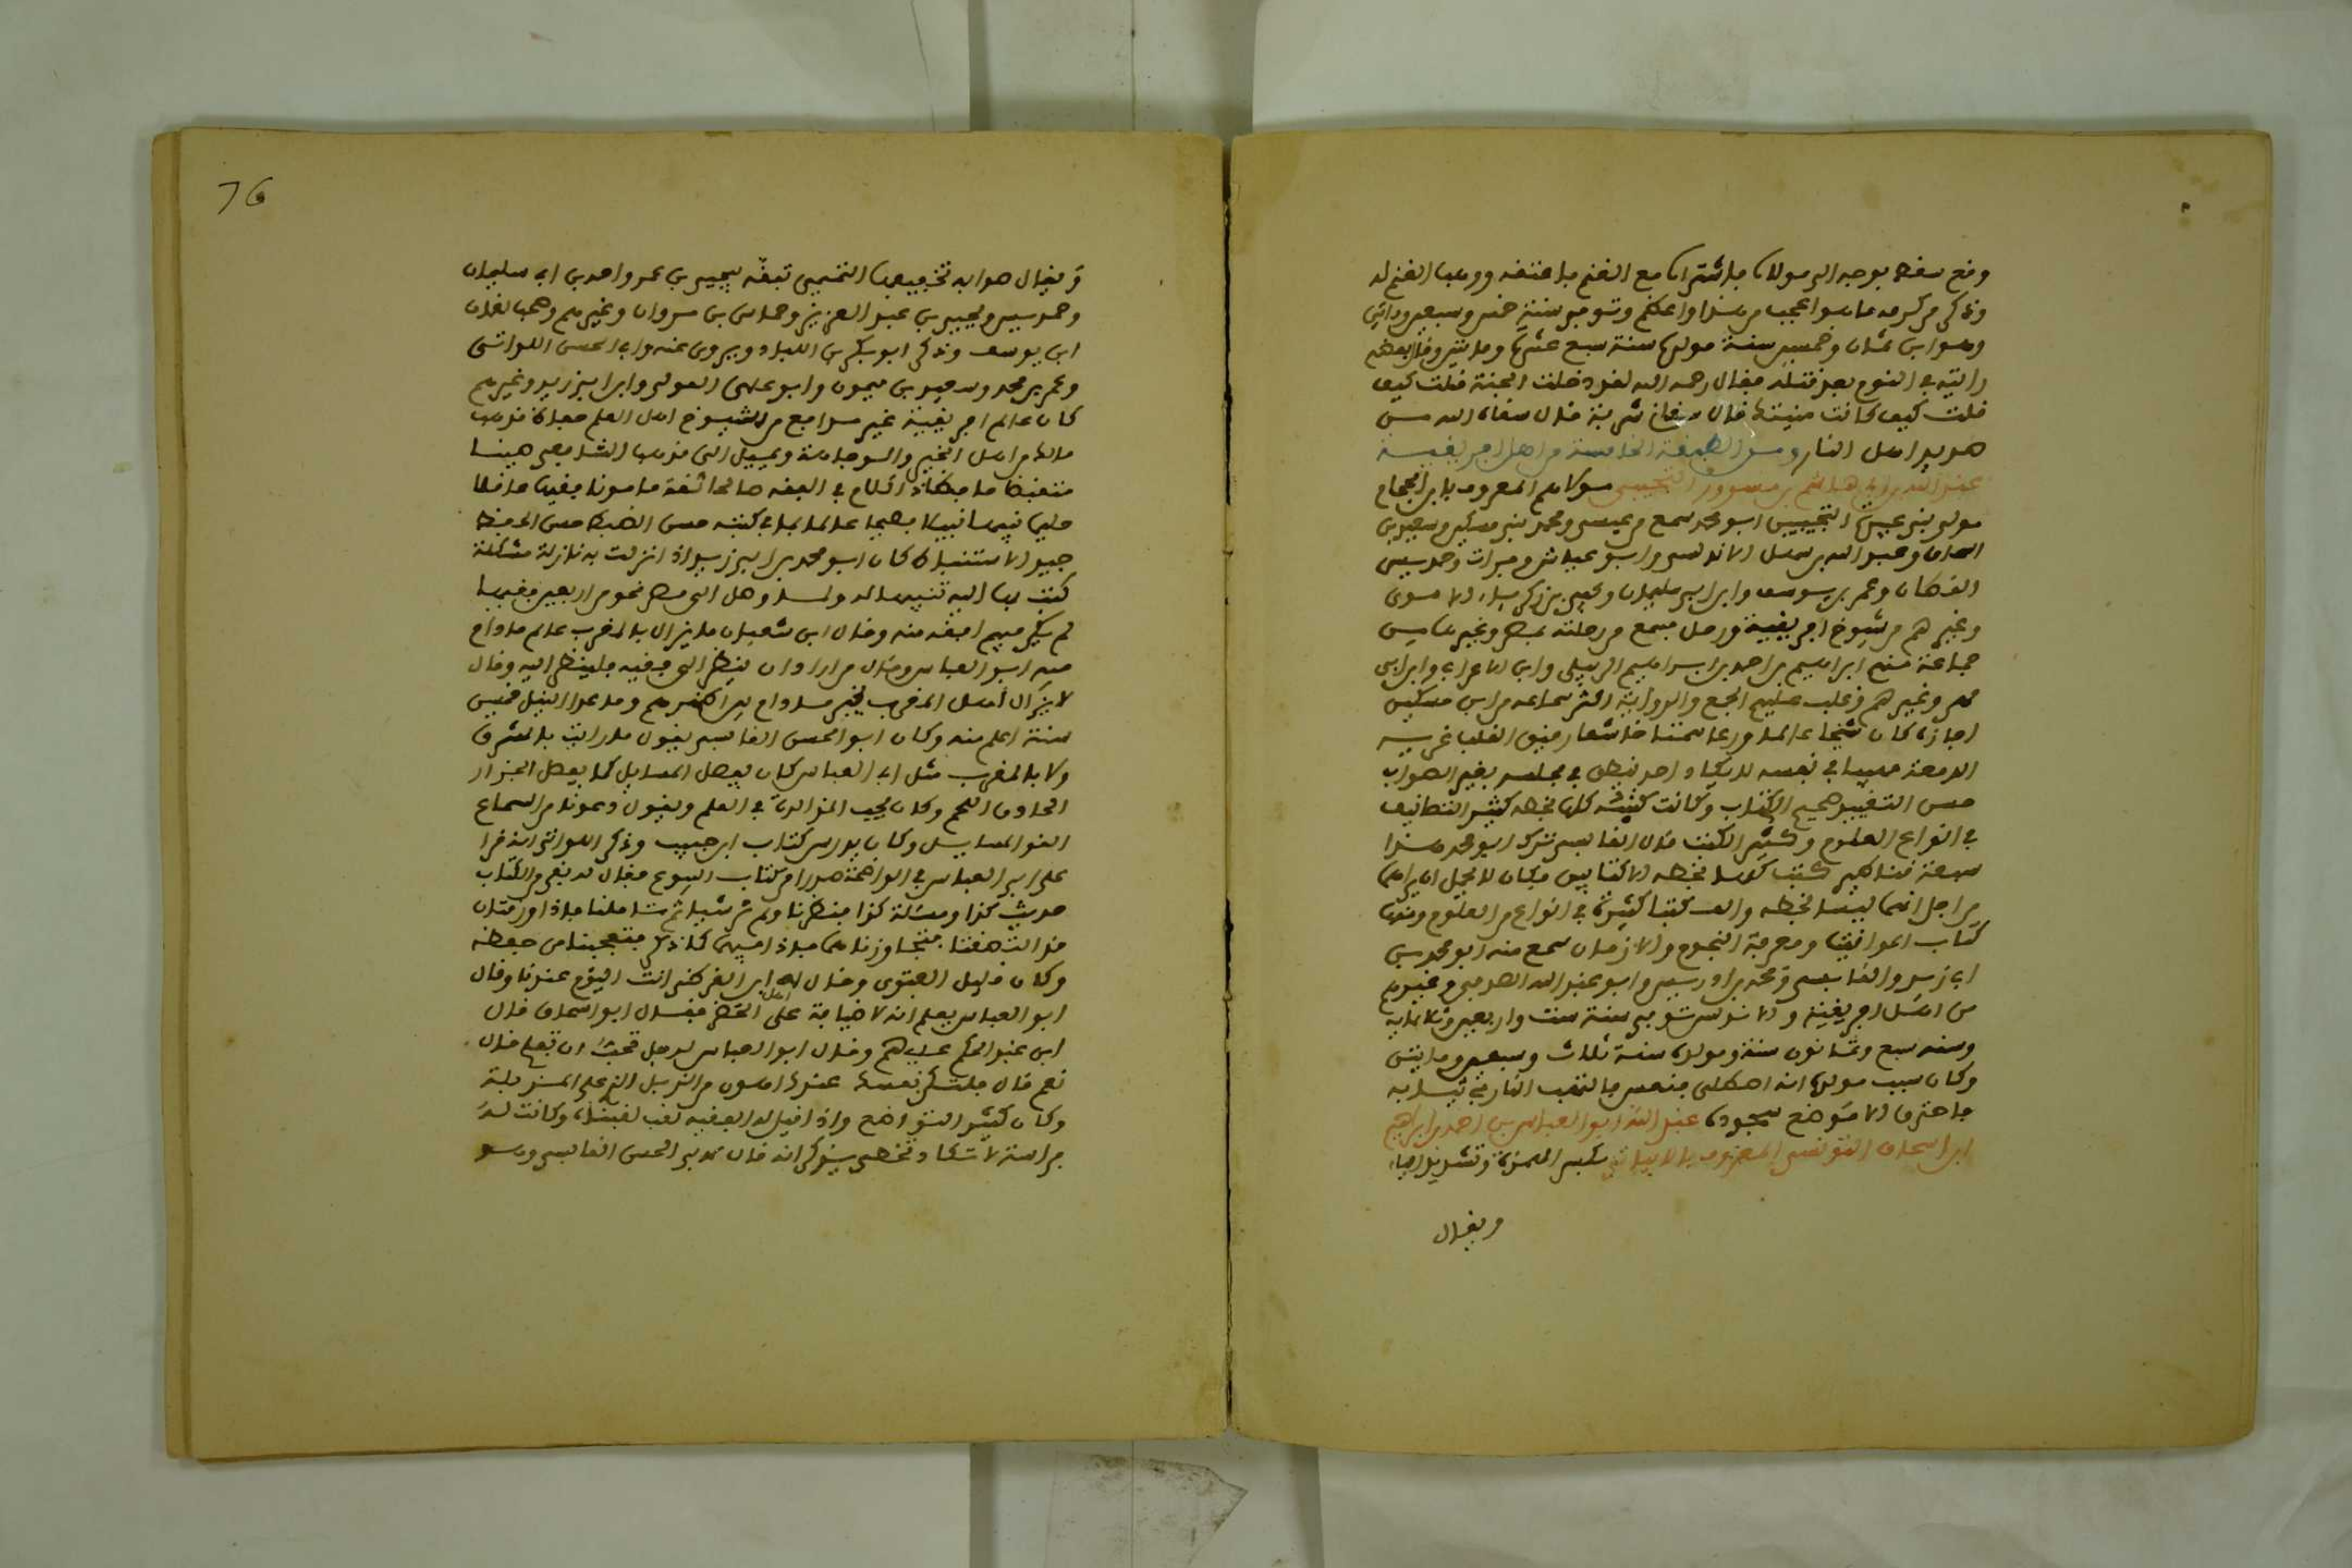 وفع سفط بوجه الى مولاه باشتراه مع الغنم باعتقه ووهب الغنم له
وذكر من كرمه ما هو اعجب من هذا واعظم وتوفي سنة خمس وسبعين ومائتين
وهو ابن ثمان وخمسين سنة مولده سنة سبع عشرة ومائتين وقال بعضهم
رايته في النوم بعد قتله فقال رحمه الله لقد دخلت الجنة فلت كيف
فلت كيف كانت منيتك قال شربة قال سقاه الله من
هو من اهل النار ومن الطبقة الخامسة من اهل افريقية
عبد الله بن ابي هاشم بن مسرور التجيبي مولاهم المعروف بابن الحجام
مولى بني عبيدة التجيبي ابو محمد سمع من عيسى ومحمد بني مسكين وسعيد بن
اسحاق وعبد الله بن سهل الاندلسي وابو عياش وفرات وحمديس
القطان وعمر بن يوسف وابن ابي سليمان ويحيى بن زكرياء الاموي
وغيرهم من شيوخ افريقية ورحل فسمع في رحلته بمصر وغيرها من
جماعة منهم ابراهيم بن احمد بن ابراهيم الربيلي وابن الاعرابي وابن ابي
مطر وغيرهم وغلب عليه الجمع والرواية اكثر سماعه من ابن مسكين
اجازة كان شيخا عالما ورعا سمتا خاشعا رفيق القلب غزير
الدمعة مهيبا في نفسه لا يكاد احد ينطق في مجلسه بغير الصواب
حسن التقييد صحيح الكتاب وكانت كتبه كلها بخطه كثير التصانيف
في انواع العلوم وكثير الكتب قال القابسي ترك ابو محمد هذا
سبعة قناطير كتب كلها بخطه الا كتابين فكان لا يجل ان يراهما
من اجل انهما ليسا بخطه والف كتبا كثيرة في انواع من العلوم ومنها
كتاب المواقيت ومعرفة النجوم والازمان سمع منه ابو محمد بن
ابي زيد والقابسي ومحمد بن ادريس وابو عبد الله الصدفي وغيرهم
من اهل افريقية والاندلس توفي سنة ست واربعين وثلاثماية
وسنه سبع وثمانون سنة ومولده سنة ثلاث وسبعين ومايتين
وكان سبب موته انه اصطلى فنعس فالتهب النار في ثيابه
فاحترق الا موضع سجوده عبد الله ابو العباس بن احمد بن ابراهيم
ابن اسحاق التونسي المعروف بالابياني بكسر الهمزة وتشديد الباء
ويقال
76
ويقال هو ابه تخفيفها التميمي تبفه بيحيى بن عمر واحمد بن ابي سليمان
وحمديس ويحيى بن عبد العزيز وحماس بن مروان وغيرهم وصحب لقمان
ابن يوسف وذكر ابو بكر بن اللباد ويروى عنه وابا الحسن اللواتي
وعمر بن محمد وسعيد بن ميمون وابو علي الصوفي وابن ابي زيد وغيرهم
كان عالم افريقية غير مدافع من شيوخ اهل العلم حفاظ مذهب
مالك من اهل الخير والوجاهة ويميل الى مذهب الشافعي حسن
الكلام في الفقه صالحا ثقة مامونا فقيها حافظا
حليما نبيها نبيلا فصيحا عالما بما في كتبه حسن الضبط حسن الحفظ
جيد الاستنباط كان ابو محمد بن ابي زيد اذا نزلت به نازلة مشكلة
كتب بها اليه تبينها له ولما وصل الى مصر نحو من اربعين فقيها
لم يكن فيهم افقه منه وقال ابن شعبان ما يزال بالمغرب علم ما دام
فيه ابو العباس وقال من اراد ان ينظر الى فقيه فلينظر اليه وقال
لا يزال اهل المغرب بخير ما دام بين اظهرهم وما عدا النيل خمسين
سنة اعلم منه وكان ابو الحسن القابسي يقول ما رايت بالمشرق
ولا بالمغرب مثل ابي العباس كان يفصل المسايل كما يفصل الجزار
الحاذق اللحم وكان يحب المذاكرة في العلم ويقول دعونا من السماع
القوا المسايل وكان يدرس كتاب ابن حبيب وذكر اللواتي انه قرا
على ابي العباس في الواضحة صدرا من كتاب البيوع فقال له بقي من الكتاب
حديث كذا ومسئلة كذا فنظرنا ولم نر شيئا ثم تاملنا فاذا ورقتان
قد التصقتا فتجاوزناهما فاذا فيهما كما ذكر فتعجبنا من حفظه
وكان قليل الفتوى وقال له ابن القرطبي انت اليوم عندنا وقال
ابو العباس يعلم انه لا ضيافة على اهل الحضر فقال ابو اسحاق قال
ابن عبد الحكم عليهم وقال ابو العباس لرجل تحب ان تفلح قال
نعم قال فلتكن نفسك عندك اهون من الزبل الذي على المزبلة
وكان كثير التواضع واذا قيل له الفقيه تغب لفبتك وكانت له
فراسة لا تكاد تخطئ يذكر انه قال لابي الحسن القابسي وهو